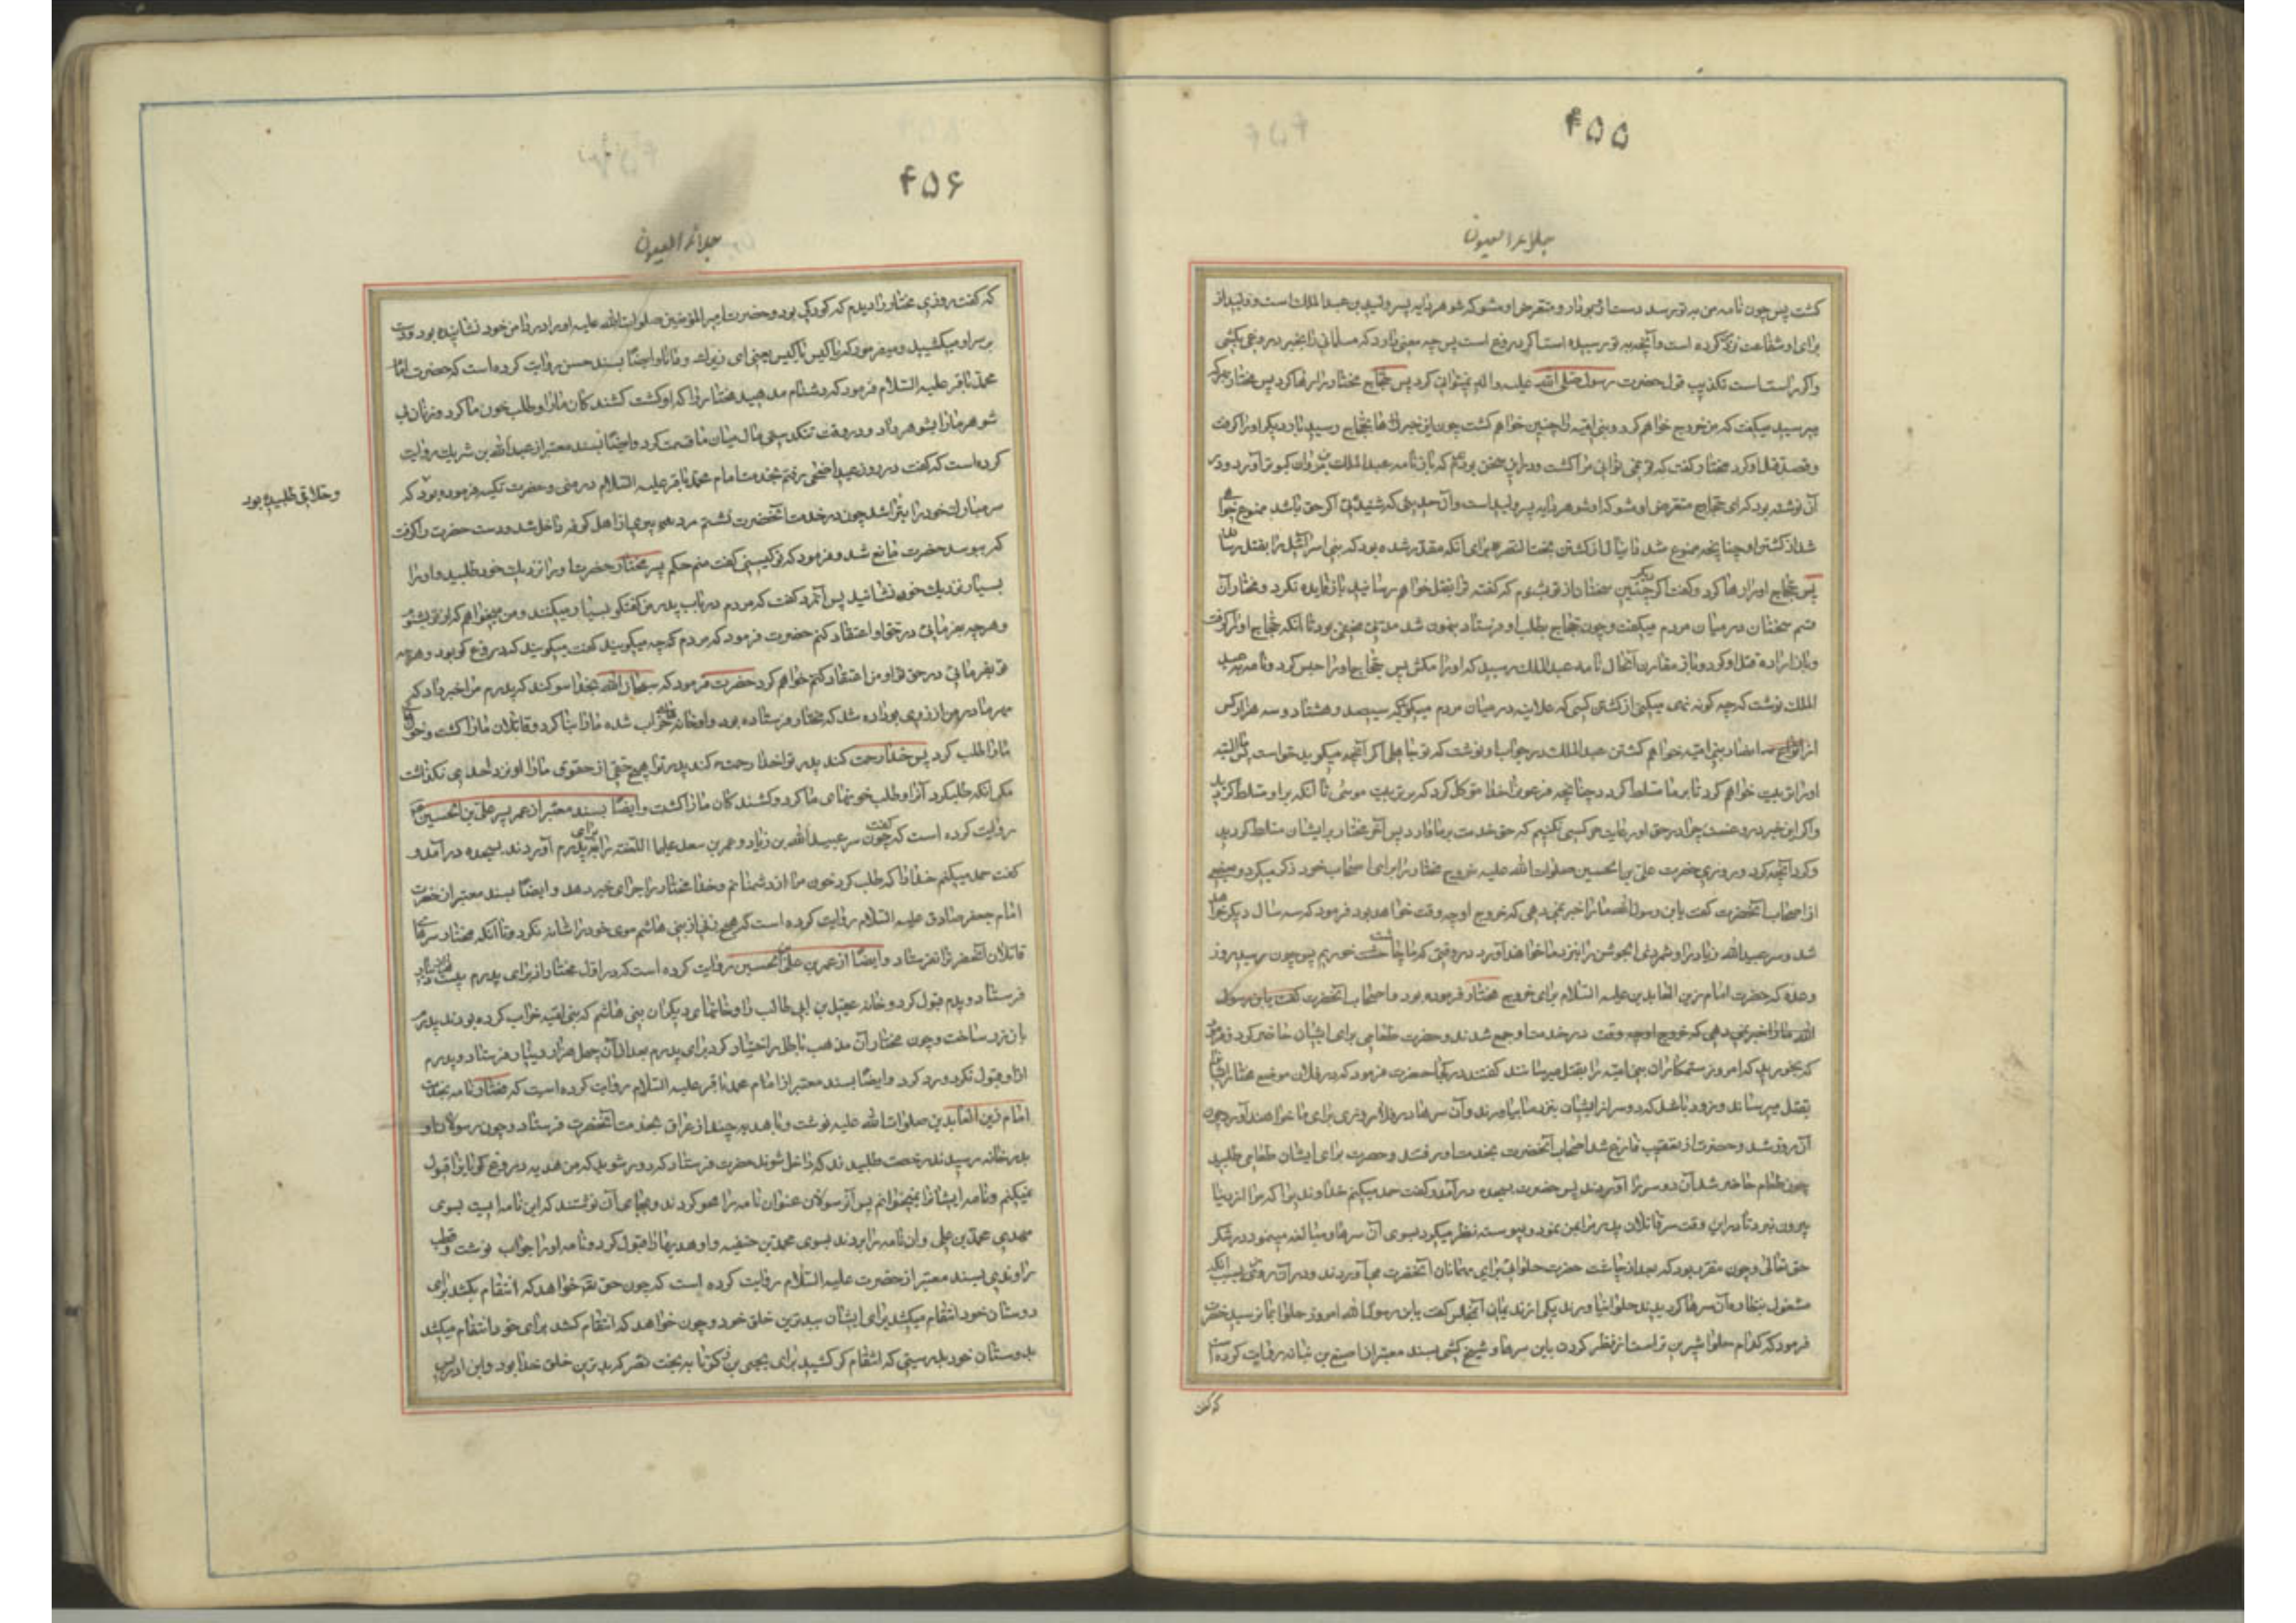 ۴۵۵
جلاء العیون
کشت پس چون نامه من به تو برسد دست از او بردار و متعرض او مشو که شوهر دایه پسر ولید بن عبد الملک است و ولید از
برای او شفاعت نزد من کرده است و آنچه به تو رسیده است اگر دروغ است پس چه معنی دارد که مسلمانی را بخبر دروغی بکشی
و اگر راست است تکذیب قول حضرت رسول صلی الله علیه و اله نمیتوانی کرد پس حجاج مختار را رها کرد پس مختار بهر که
میرسید میگفت که من خروج خواهم کرد و بنی امیه را چنین خواهم کشت چون این خبرها بحجاج رسید بار دیگر او را گرفت
و قصد قتل او کرد مختار گفت که تو نمی توانی مرا کشت و در این سخن بودم که باز نامه عبد الملک بن مروان کبوتر آورد و در
آن نوشته بود که ای حجاج متعرض او مشو که او شوهر دایه پسرم ولید است و آن حدیثی که شنیده‌ای اگر حق باشد ممنوع خواهی
شد از کشتن او چنانچه ممنوع شد دانیال از کشتن بخت النصر برای آنکه مقدر شده بود که بنی اسرائیل را بقتل رساند
پس حجاج او را رها کرد و گفت اگر دیگر چنین سخنان از تو بشنوم که گفته ترا بقتل خواهم رسانید باز فایده نکرد و مختار آن
قسم سخنان در میان مردم میگفت و چون حجاج بطلب او فرستاد پنهون شد مدتی مخفی بود تا آنکه حجاج او را گرفت
و باز اراده قتل او کرد و باز مقارن آنحال نامه عبد الملک رسید که او را مکش پس حجاج او را حبس کرد و نامه به عبد
الملک نوشت که چه گونه نهی میکنی از کشتن کسی که علانیه در میان مردم میگوید که سیصد و هشتاد و سه هزار کس
از انصار بنی امیه خواهم کشتن عبد الملک در جواب او نوشت که تو جاهلی اگر آنچه میگوید خواست که البته
او را تربیت خواهم کرد تا بر ما مسلط گردد چنانچه فرعون را خدا موکل کرد که بر تربیت موسی تا آنکه بر او مسلط گردید
و اگر این خبر دروغست چرا در حق او رعایت حق کسی نکنیم که حق خدمت بر ما دارد پس آخر مختار بر ایشان مسلط گردید
و کرد آنچه کرد و روزی حضرت علی بن الحسین صلوات الله علیه خروج مختار را برای اصحاب خود ذکر میکرد و بعضی
از اصحاب آنحضرت گفت یابن رسول الله ما را خبر نمی دهی که خروج او چه وقت خواهد بود فرمود که سه سال دیگر خواهد
شد و سر عبید الله زیاد را و شمر ذی الجوشن را بنزد ما خواهند آورد در وقتی که ما چاشت خوریم پس چون رسید روز
وعده که حضرت امام زین العابدین علیه السلام برای خروج مختار فرموده بود و اصحاب آنحضرت گفت یابن رسول
الله ما را خبر نمی دهی که خروج او چه وقت در خدمت او جمع شدند و حضرت طعامی برای ایشان حاضر کرد و فرمود
که بخورید که امروز ستمکاران بنی امیه را بقتل میرسانند گفتند در کجا حضرت فرمود که در فلان موضع مختار ایشان را
بقتل میرساند و زود باشد که دو سر از ایشان بنزد ما بیاورند و آن سرها در فلان روزی برای ما خواهند آورد چون
آن روز شد و حضرت از تعقیب فارغ شد اصحاب آنحضرت بخدمت او رفتند و حضرت برای ایشان طعامی طلبید
چون طعام حاضر شد آن دو سر را آوردند پس حضرت بسجده در آمد و گفت حمد میکنم خداوندیرا که مرا از دنیا
بیرون نبرد تا در این وقت سر قاتلان پدر مرا بمن نمود و پیوسته نظر میکرد بسوی آن سرها و مبالغه مینمود در شکر
حق تعالی و چون مقرر بود که بعد از چاشت حضرت حلوائی برای مهمانان آنحضرت می آوردند و در آن روز بسبب آنکه
مشغول بنظاره آن سرها کردیدند حلوا نیاوردند یکی از ندیمان آنمجلس گفت یابن رسول الله امروز حلوا بما نرسید حضرت
فرمود که کدام حلوا شیرین تر است از نظر کردن باین سرها و شیخ کشی بسند معتبر از اصبغ بن نباته روایت کرده است
که گفت
۴۵۶
جلاء العیون
که گفت روزی مختار را دیدم که کودکی بود و حضرت امیر المؤمنین صلوات الله علیه او را در دامن خود نشانیده بود و دست
بر سر او میکشید و میفرمود که یا کیس یا کیس یعنی ای زیرک و دانا و ایضا بسند حسن روایت کرده است که حضرت امام
محمد باقر علیه السلام فرمود که دشنام مدهید مختار را که او کشت کشندکان ما را و طلب خون ما کرد و زنان بی
شوهر ما را بشوهر داد و در وقت تنکدستی مال میان ما قسمت کرد و ایضا بسند معتبر از عبد الله بن شریک روایت
کرده است که گفت در روز عید اضحی رفتم بخدمت امام محمد باقر علیه السلام در منی و حضرت تکیه فرموده بود که
وحلاقی طلبیده بود
سر مبارک خود را بتراشد چون در خدمت آنحضرت نشستم مرد پیری از اهل کوفه داخل شد و دست حضرت را گرفت
که ببوسد حضرت مانع شد و فرمود که تو کیستی گفت منم حکم پسر مختار حضرت او را نزدیک خود طلبید و او را
بسیار نزدیک خود نشانید پس آنمرد گفت که مردم در باب پدر من گفتگو بسیار میکنند و من میخواهم که از تو بشنوم
و هر چه بفرمائی در حق او اعتقاد کنم حضرت فرمود که مردم که چه میگویند گفت میگویند که دروغ گو بود و هر چه
تو بفرمائی در حق او من اعتقاد کنم خواهم کرد حضرت فرمود که سبحان الله بخدا سوگند که پدرم مرا خبر داد که
مهر مادر من از زری بود داده شد که مختار فرستاده بود و او خانهای خراب شده ما را بنا کرد و قاتلان ما را کشت و خون
ما را طلب کرد پس خدا رحمت کند پدر ترا خدا رحمت کند پدر ترا هیچ حقی از حقوق ما را او نزد احدی نگذاشت
مگر آنکه طلبکرد آنرا و طلب خونهای ما کرد و کشندکان ما را کشت و ایضا بسند معتبر از عمر پسر علی بن الحسین
روایت کرده است که گفت چون سر عبید الله بن زیاد و عمر بن سعد علیهما اللعنه را برای پدرم آوردند بسجده در آمد و
گفت حمد میکنم خدا را که طلب کرد خون مرا از دشمنانم و خدا مختار را جزای خیر دهد و ایضا بسند معتبر از حضرت
امام جعفر صادق علیه السلام روایت کرده است که هیچ زنی از بنی هاشم موی خود را شانه نکرد تا آنکه مختار سرهای
قاتلان آنحضرت را نفرستاد و ایضا از عمر بن علی بن الحسین روایت کرده است که در اول مختار از برای پدرم بیست هزار دینار
فرستاد و پدرم قبول کرد و خانه عقیل بن ابی طالب را و خانهای دیگران بنی هاشم که بنی امیه خراب کرده بودند پدرم
بان زر ساخت و چون مختار آن مذهب باطل را اختیار کرد برای پدرم بعد از آن چهل هزار دینار فرستاد و پدرم
از او قبول نکرد و رد کرد و ایضا بسند معتبر از امام محمد باقر علیه السلام روایت کرده است که مختار نامه بخدمت
امام زین العابدین صلوات الله علیه نوشت و با هدیه چند از عراق بخدمت آنحضرت فرستاد و چون رسولان او
بدر خانه رسیدند رخصت طلبیدند که داخل شوند حضرت فرستاد که دور شوید که من هدیه دروغ گویان را قبول
نمیکنم و نامه ایشان را نمیخوانم پس آن رسولان عنوان نامه را محو کردند و بجای آن نوشتند که این نامه ایست بسوی
مهدی محمد بن علی و آن نامه را بردند بسوی محمد بن حنفیه و او هدیها را قبول کرد و نامه او را جواب نوشت و قطب
راوندی بسند معتبر از حضرت علیه السلام روایت کرده است که چون حق تعالی خواهد که انتقام بکشد برای
دوستان خود انتقام میکشد برای ایشان ببدترین خلق خود و چون خواهد که انتقام کشد برای خود انتقام میکشد
بدوستان خود بدرستی که انتقام کشید برای یحیی بن زکریا به بخت نصر که بدترین خلق خدا بود و ابن ادریس